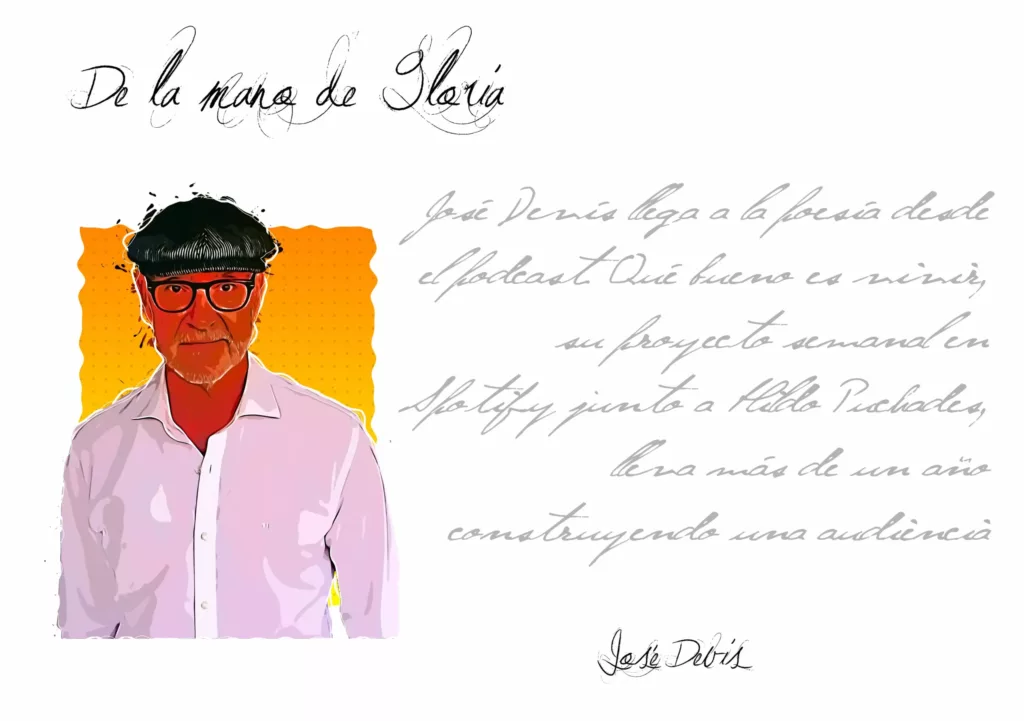 De la mano de Gloria
José Denis llega a la poesía desde
el podcast. Qué bueno es vivir,
su proyecto semanal en
Spotify junto a Hildo Puchades,
lleva más de un año
construyendo una audiencia
José Debis